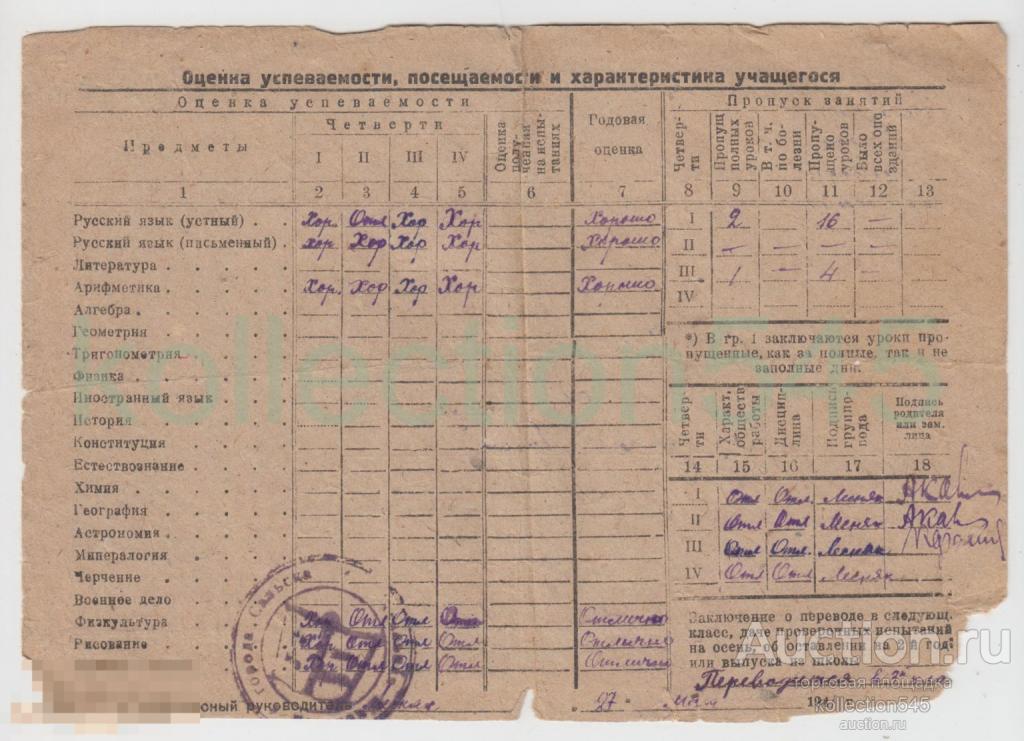 Оценка успеваемости, посещаемости и характеристика учащегося
Оценка успеваемости
Предметы
Четверти
I II III IV
Оценка полученная на испытаниях
Годовая оценка
1 2 3 4 5 6 7
Русский язык (устный) Хор. Отл Хор Хор Хорошо
Русский язык (письменный) Хор. Хор Хор Хор Хорошо
Литература
Арифметика Хор. Хор Хор Хор Хорошо
Алгебра
Геометрия
Тригонометрия
Физика
Иностранный язык
История
Конституция
Естествознание
Химия
География
Астрономия
Минералогия
Черчение
Военное дело
Физкультура Хор Отл Отл Отл Отлично
Рисование Хор Отл Отл Отл Отлично
Хор Отл Отл Отл Отлично
города Сальска
руководитель
Пропуск занятий
Четверти
Пропущ полных уроков
В т. ч. по болезни
Пропущено уроков
Было всех опозданий
8 9 10 11 12 13
I 2 — 16 —
II — — — —
III 1 — 4 —
IV
*) В гр. 1 заключаются уроки пропущенные, как за полные, так и не
заполные дни.
Четверти
Характ. обществ работы
Дисциплина
Подпись группровода
Подпись родителя или зам. лица
14 15 16 17 18
I Отл Отл
II Отл Отл
III Отл Отл
IV Отл Отл
Заключение о переводе в следующ.
класс, даче проверочных испытаний
на осень, об оставлении на 2-й год
или выпуска из школы
Переводится в
27 мая 194
kollection545
Auction.ru
торговая площадка
kollection545
auction.ru